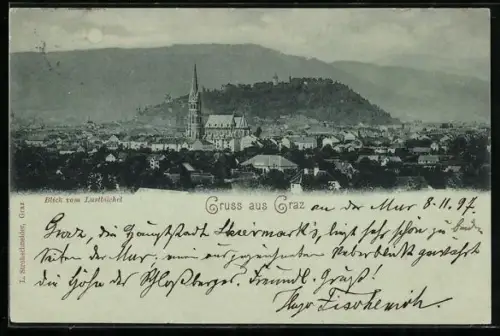 Blick vom Lustbüchel
Gruss aus Graz
an der Mur 8.11.97.
Graz, die Hauptstadt Steiermark's, liegt sehr schön zu beiden
Seiten der Mur, einen Ueberblick gewährt
die Höhe des Schloßberges. Freundl. Gruß!
Hugo
L. Strohschneider, Graz